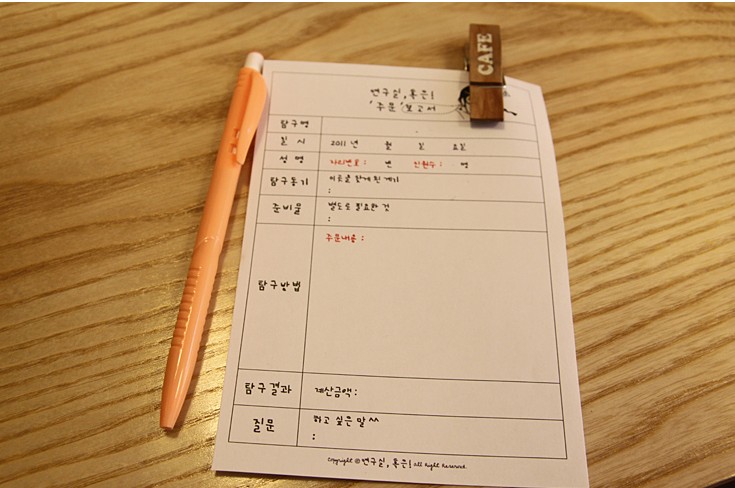 CAFE
연구실, 혹은!
'주문' 보고서
탐구명
일 시 2011 년 월 일 요일
성 명 자리번호 : 번 인원수 : 명
탐구동기 이곳을 알게 된 계기
:
준비물 별도로 필요한 것
:
탐구방법 주문내용 :
탐구결과 계산금액 :
질문 하고 싶은 말 ^^
:
Copyright © 연구실, 혹은! All Right Reserved